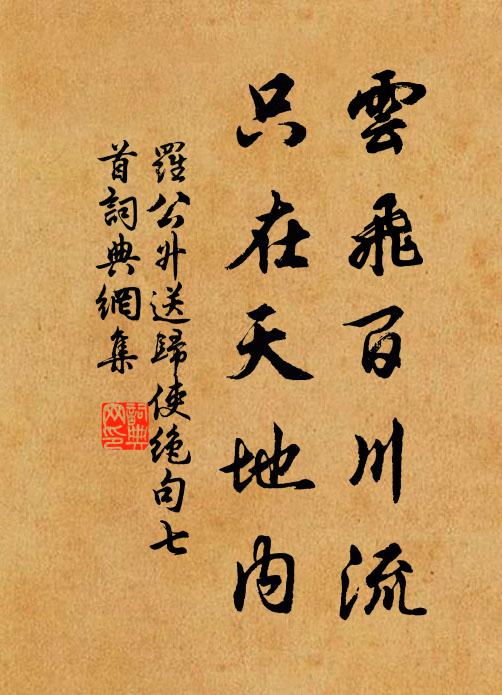 雲飛百川流
只在天地内
羅公升送歸使絶句七
首詞典網集
詞典
网印